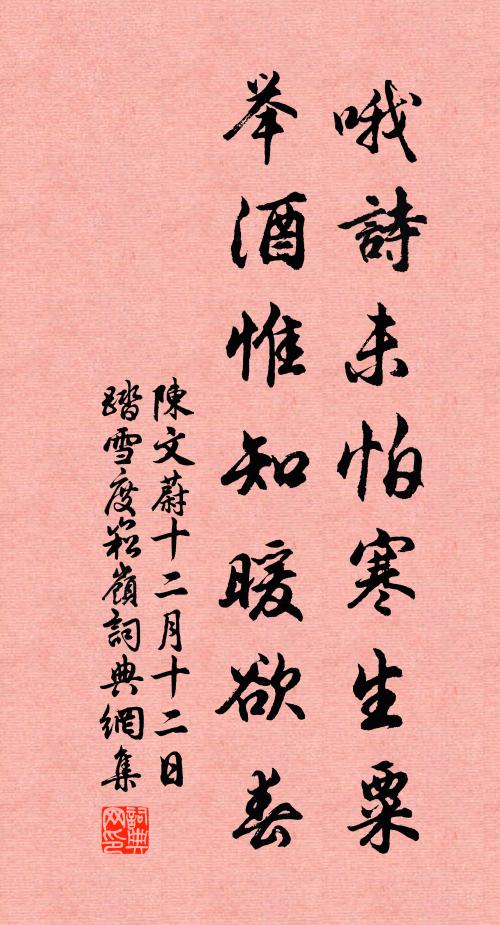 哦詩未怕寒生粟
举酒惟知暖欲春
陳文蔚十二月十二日
踏雪度崧嶺詞典網集
詞典网印